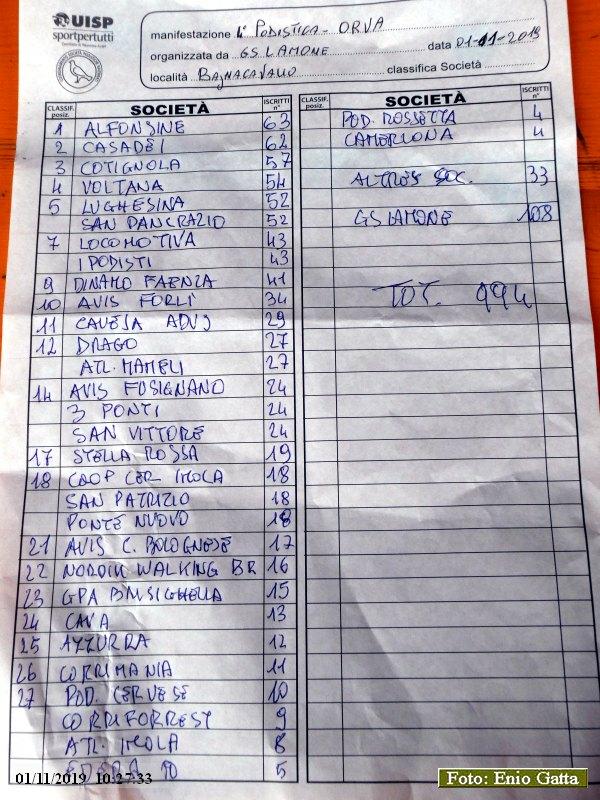 UISP
sportpertutti
manifestazione 4° PODISTICA - ORVA
organizzata da GS LAMONE data 01-11-2019
località BAGNACAVALLO classifica Società
CLASSIF. posiz. SOCIETÀ ISCRITTI n°
1 ALFONSINE 63
2 CASADEI 62
3 COTIGNOLA 57
4 VOLTANA 54
5 LUGHESINA 52
SAN PANCRAZIO 52
7 LOCOMOTIVA 43
I PODISTI 43
9 DINAMO FAENZA 41
10 AVIS FORLÌ 34
11 CAVEJA ADVS 29
12 DRAGO 27
ATL. MAMELI 27
14 AVIS FUSIGNANO 24
3 PONTI 24
SAN VITTORE 24
17 STELLA ROSSA 19
18 COOP CER. IMOLA 18
SAN PATRIZIO 18
PONTE NUOVO 18
21 AVIS C. BOLOGNESE 17
22 NORDIK WALKING BR 16
23 GPA BRISIGHELLA 15
24 CAVA 13
25 AZZURRA 12
26 CORRIMANIA 11
27 POD. CERVESE 10
CORRIFORREST 9
ATL. IMOLA 8
EDERA 90 5
CLASSIF. posiz. SOCIETÀ ISCRITTI n°
POD. ROSSETTA 4
CAMERLONA 4
ALTRES SOC. 33
GS LAMONE 108
TOT. 994
01/11/2019 10:27:33
Foto: Enio Gatta